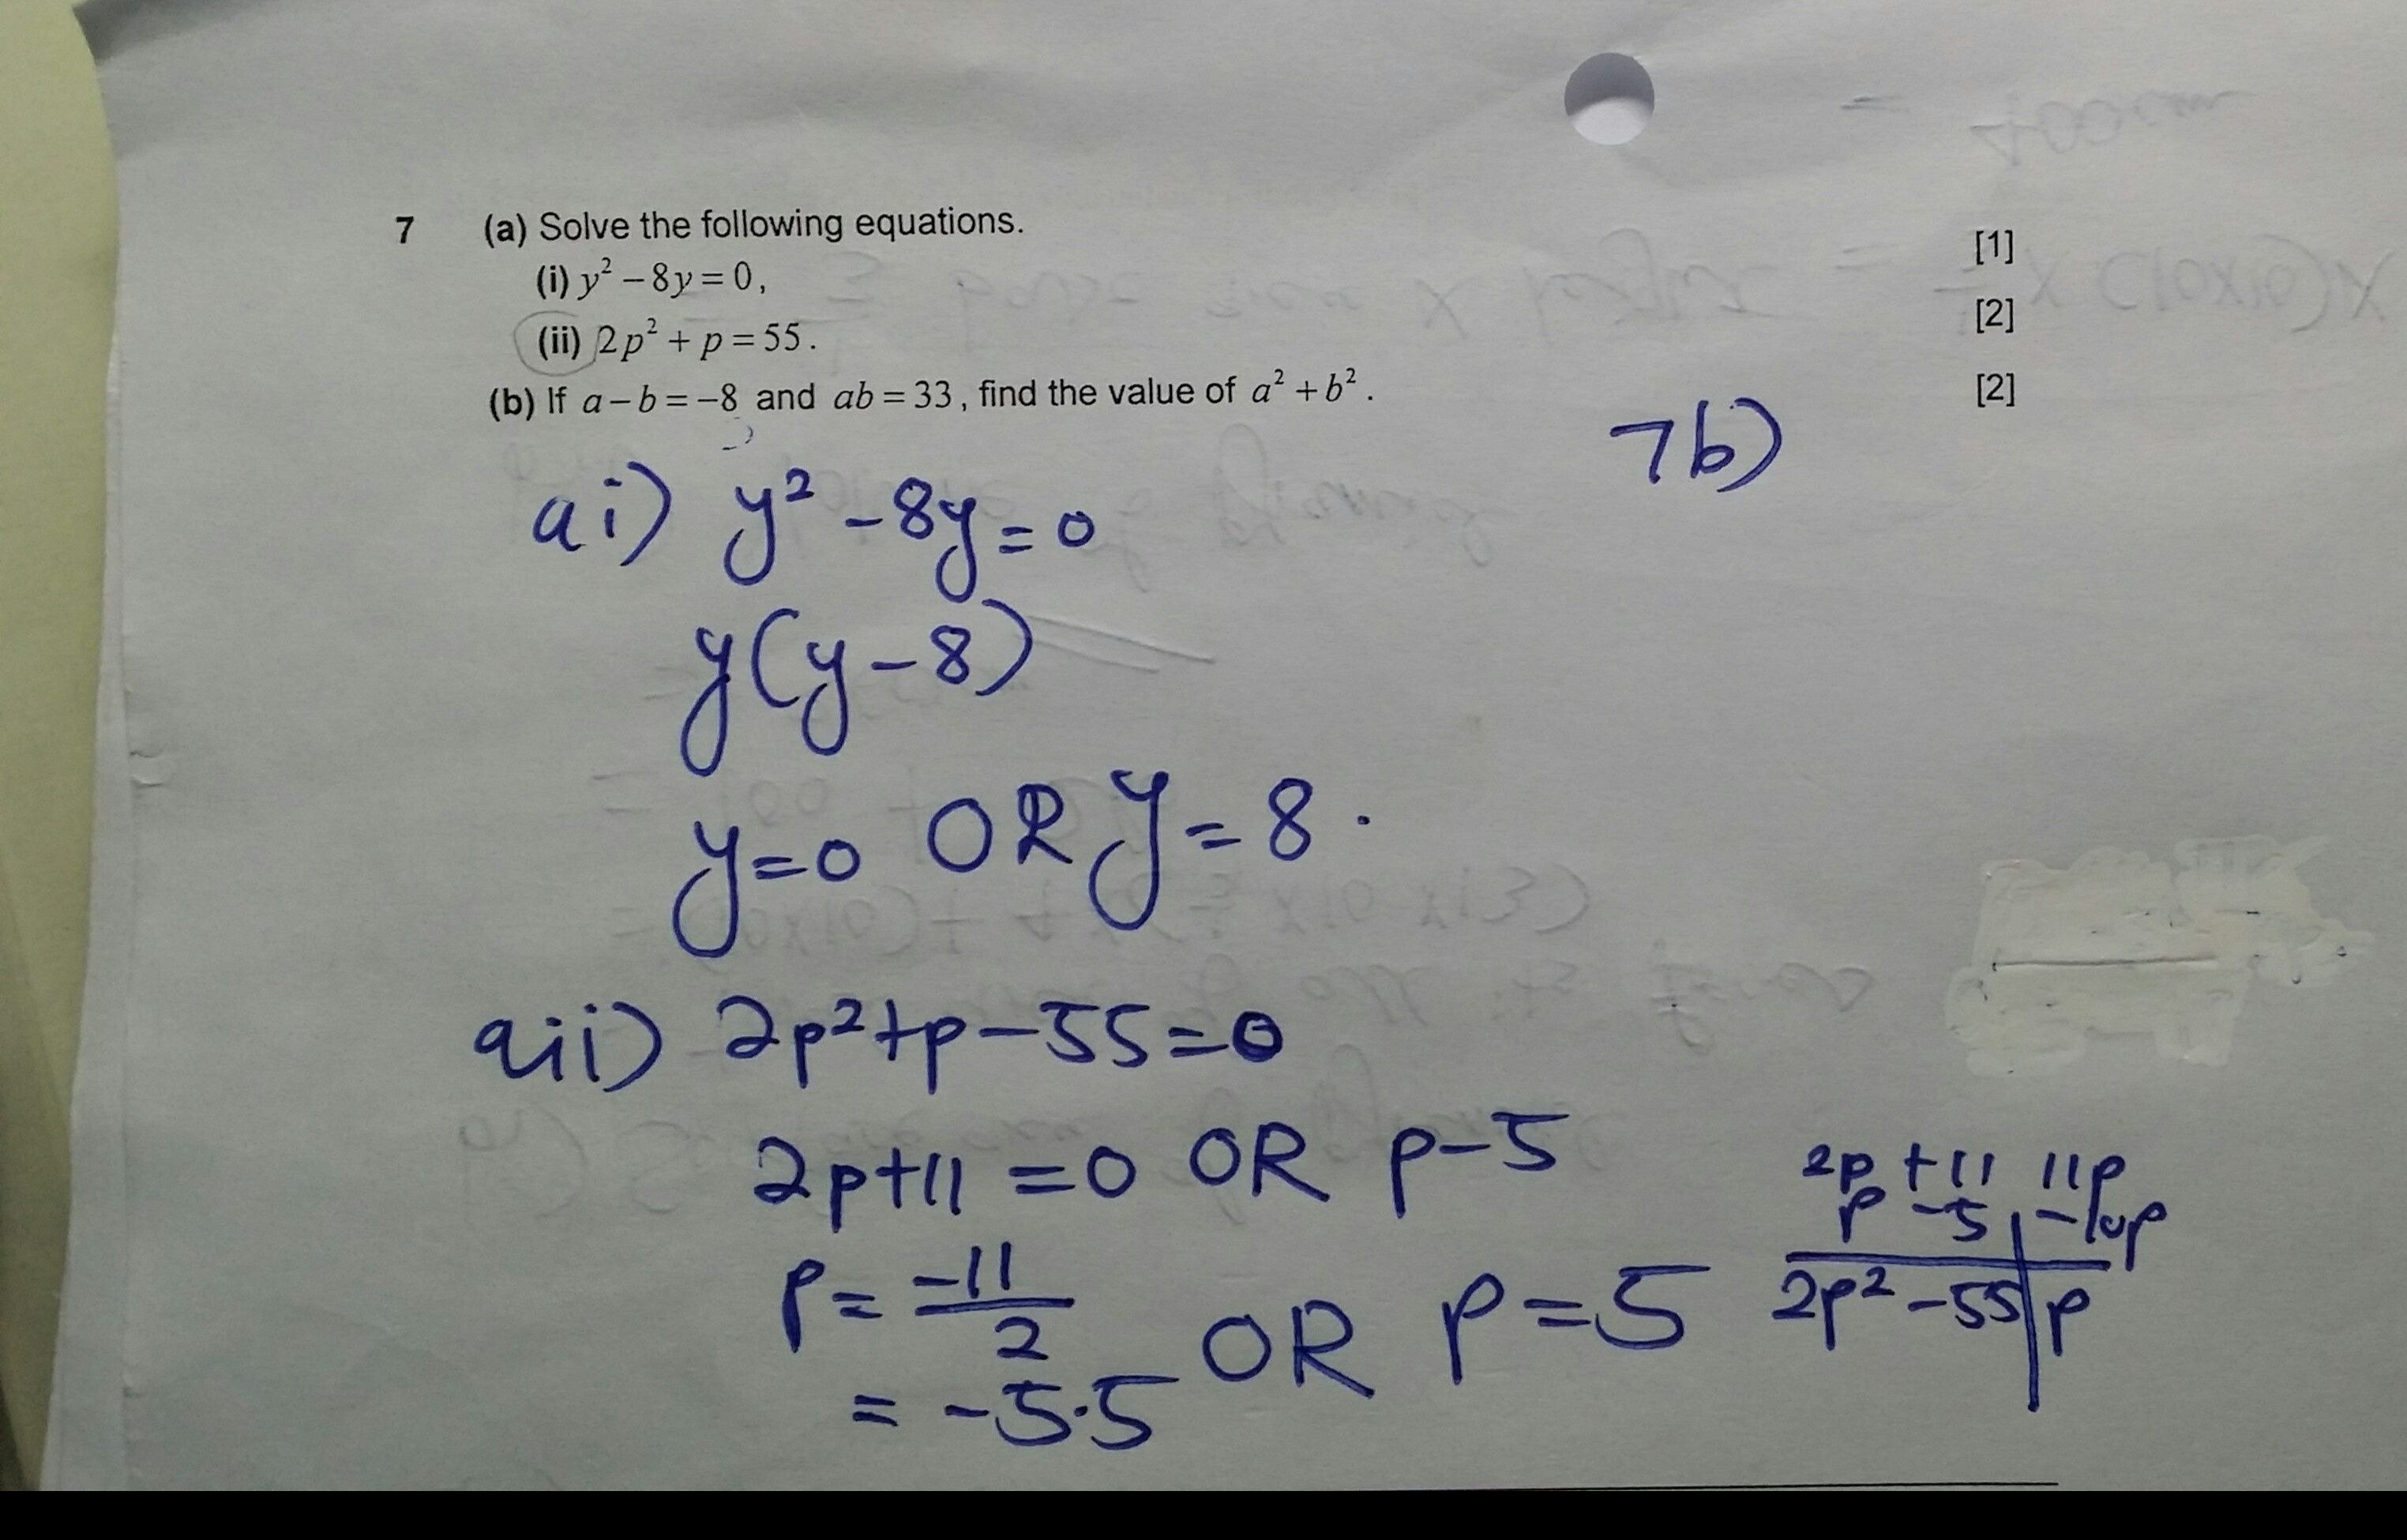 7 (a) Solve the following equations.
[1]
(i) y² – 8y = 0,
[2]
(ii) 2p² + p = 55.
(b) If a – b = –8 and ab = 33, find the value of a² + b².
[2]
7b)
ai) y² - 8y = 0
y(y-8)
y=0 OR y=8.
aii) 2p²+p-55=0
2p+11=0 OR p-5
2p +11 11p
p -5 -10p
2p² -55 p
p= -11/2 OR p=5
= -5.5